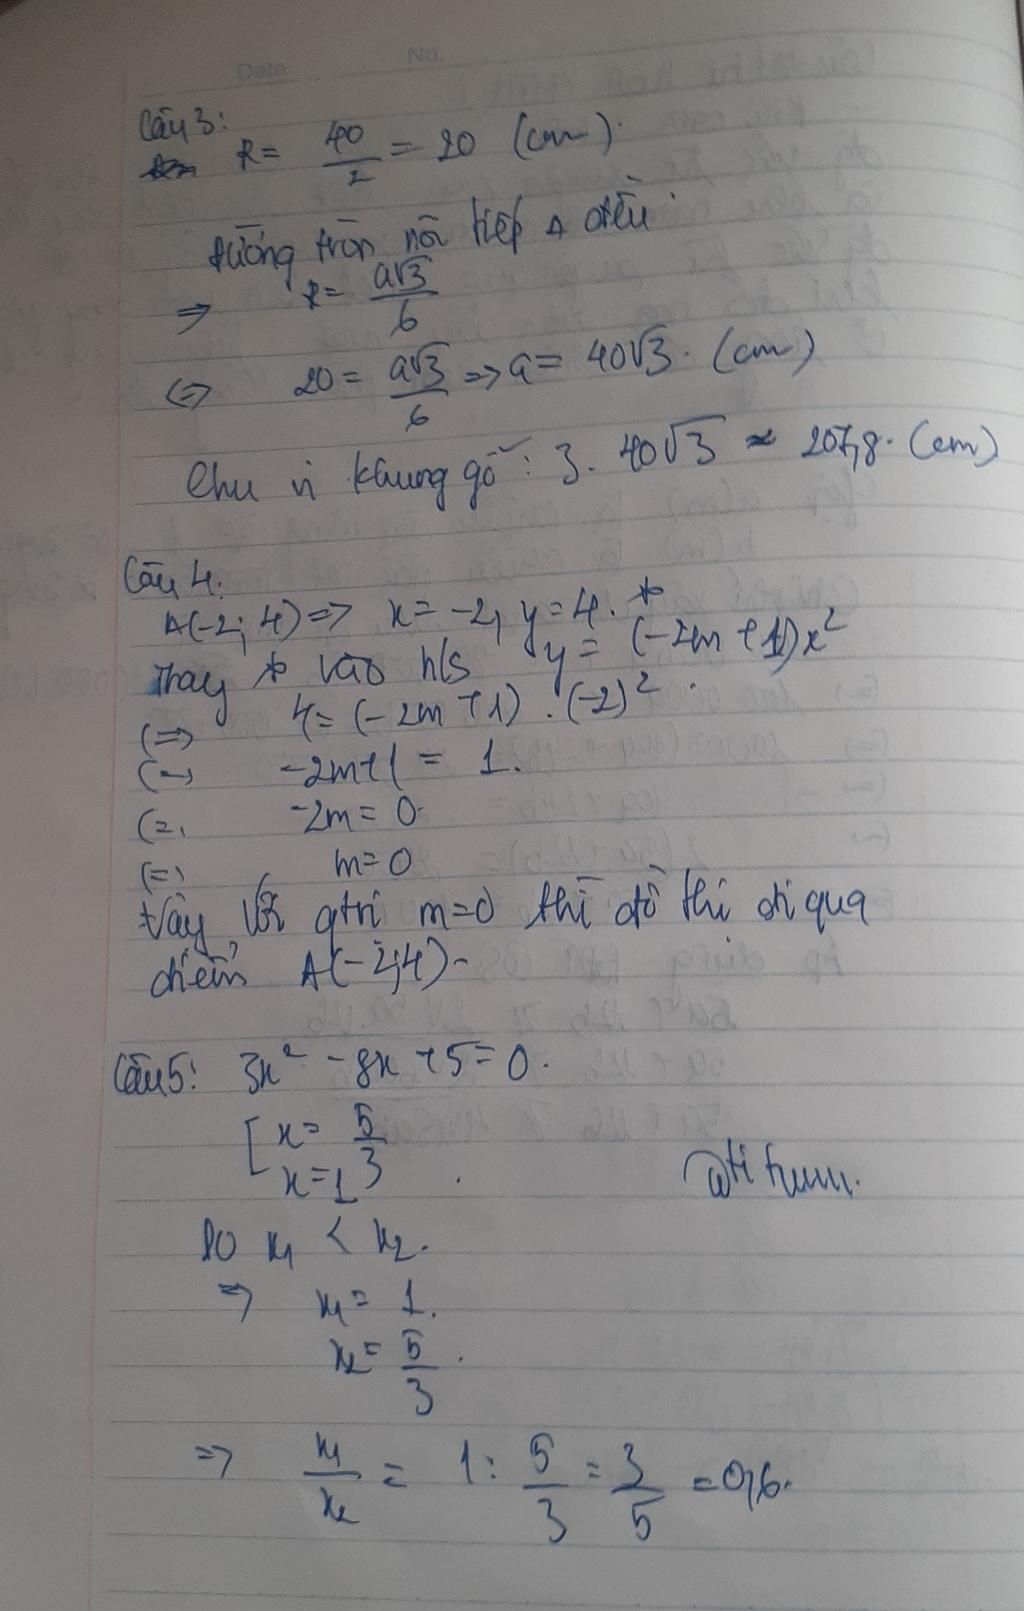 Date No.
Câu 3:
R = 40/2 = 20 (cm).
đường tròn nội tiếp Δ đều
=> r = a√3/6
<=> 20 = a√3/6 => a = 40√3. (cm)
Chu vi khung gỗ: 3. 40√3 ≈ 207,8. (cm)
Câu 4.
A(-2; 4) => x = -2, y = 4. *
Thay * vào h/s y = (-2m + 1)x²
(=> 4 = (-2m + 1) . (-2)².
(=> -2m+1 = 1.
(=> -2m = 0.
(=> m = 0
Vậy với gtrị m=0 thì đồ thị đi qua
điểm A(-2;4)-
Câu 5: 3x² - 8x + 5 = 0.
[ x = 5/3
x = 1
Do x₁ < x₂.
=> x₁ = 1.
x₂ = 5/3.
=> x₁/x₂ = 1 : 5/3 = 3/5 = 0,6.